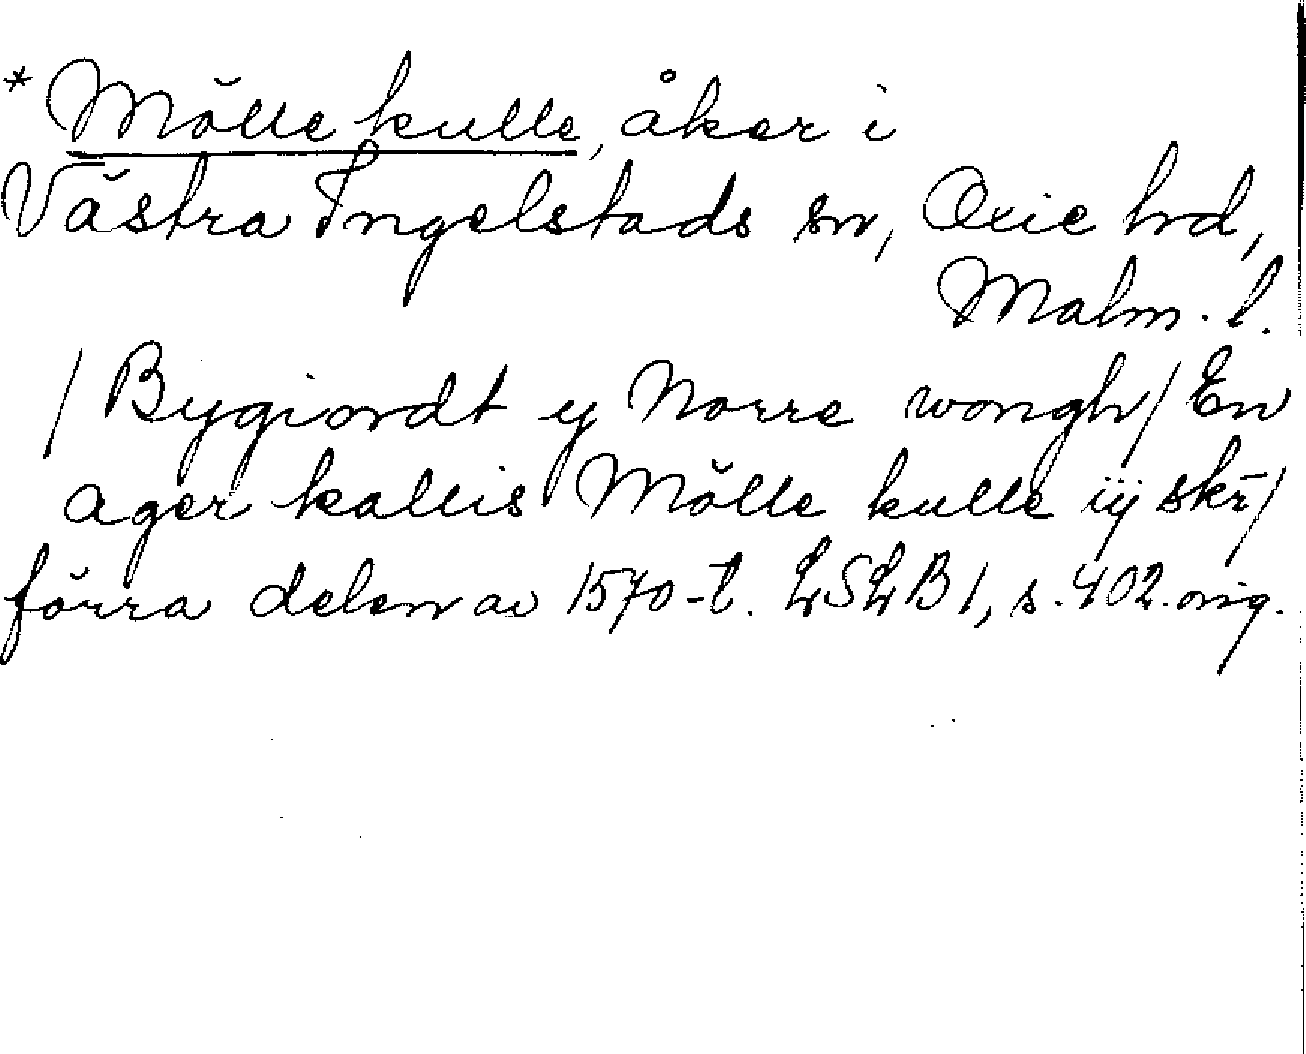 * Mölle kulle, åker i
Västra Ingelstads sn, Oxie hd,
Malm. l.
/ Bygiordt y Norre wongh / En
ager kallis Mölle kulle iij skr̄ /
förra delen av 1570-t. LSLB 1, s. 402. orig.